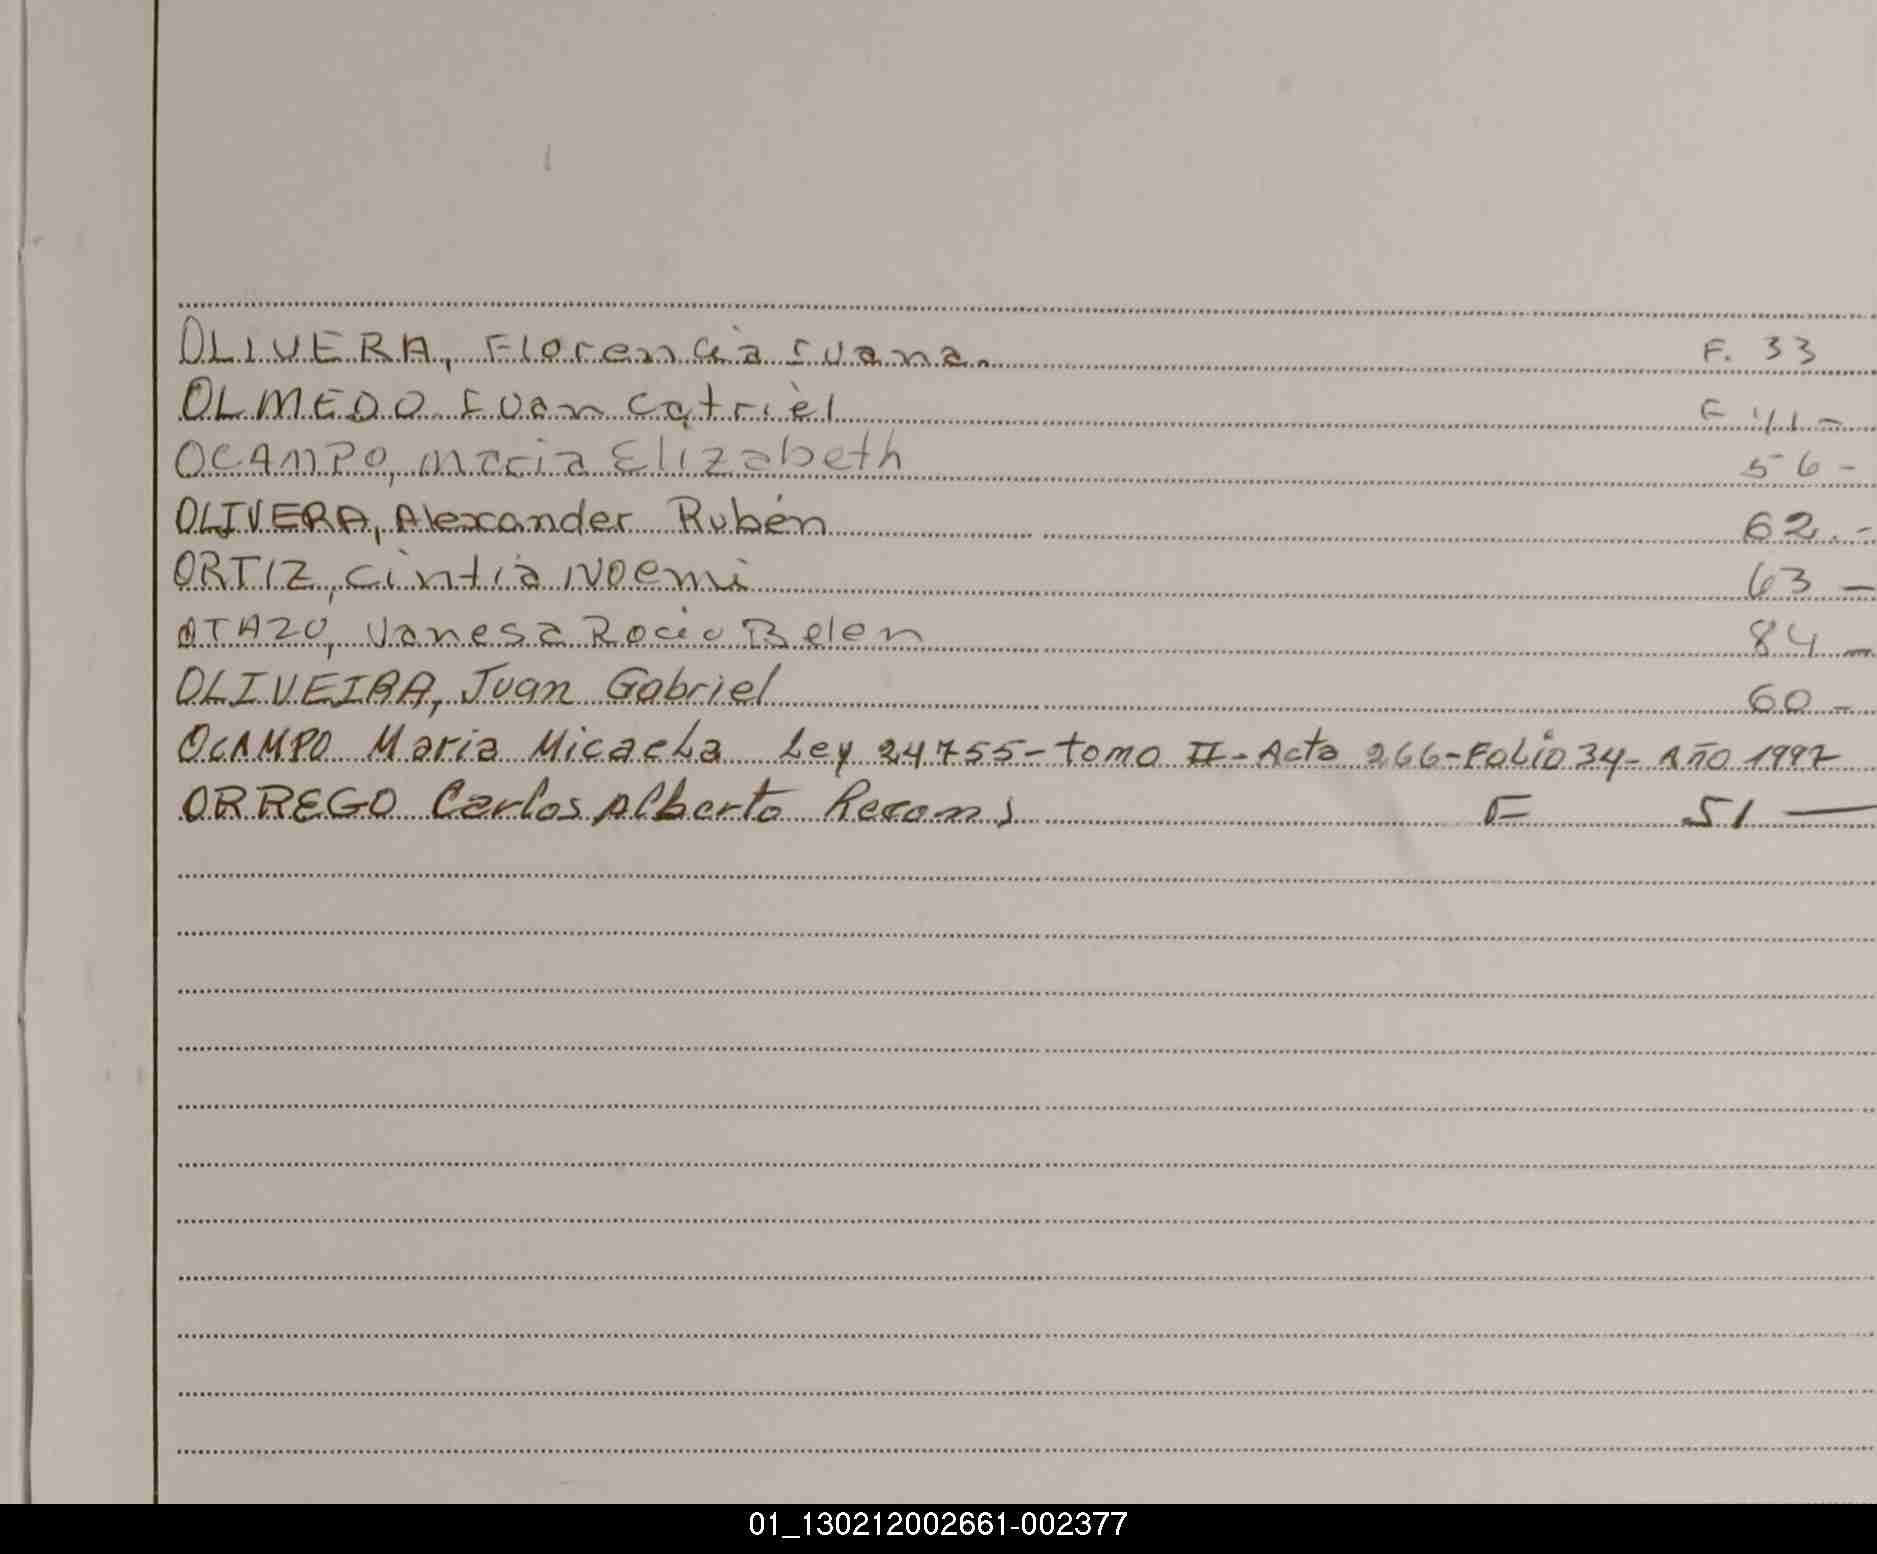 OLIVERA, Florencia Juana. F. 33
OLMEDO Juan Catriel F 41-
OCAMPO, maria Elizabeth 56-
OLIVERA, Alexander Rubén 62.-
ORTIZ, Cintia NOemi 63-
OTAZO, Vanesa Rocio Belen 84-
OLIVEIRA, Juan Gabriel 60-
OCAMPO Maria Micaela Ley 24755-tomo II-Acta 266-Folio 34-Año 1997
ORREGO Carlos Alberto Recon. F 51-
01_130212002661-002377